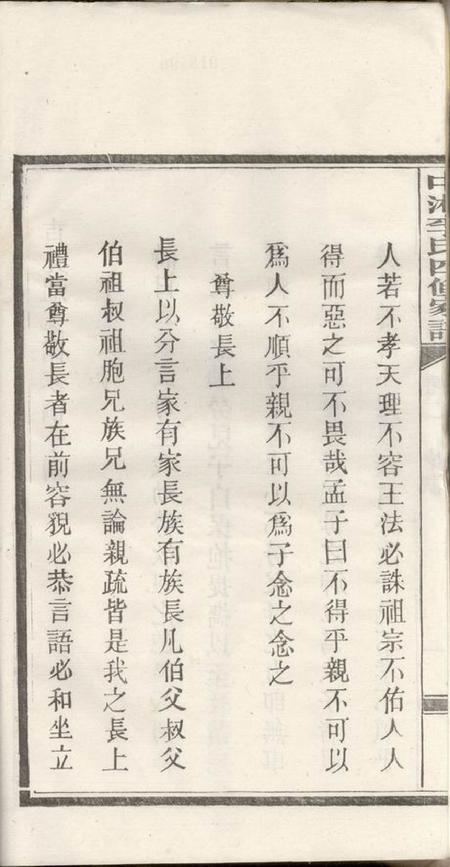 中湘李氏四修家譜
人若不孝天理不容王法必誅祖宗不佑人人
得而惡之可不畏哉孟子曰不得乎親不可以
爲人不順乎親不可以爲子念之念之
尊敬長上
長上以分言家有家長族有族長凡伯父叔父
伯祖叔祖胞兄族兄無論親疏皆是我之長上
禮當尊敬長者在前容貌必恭言語必和坐立